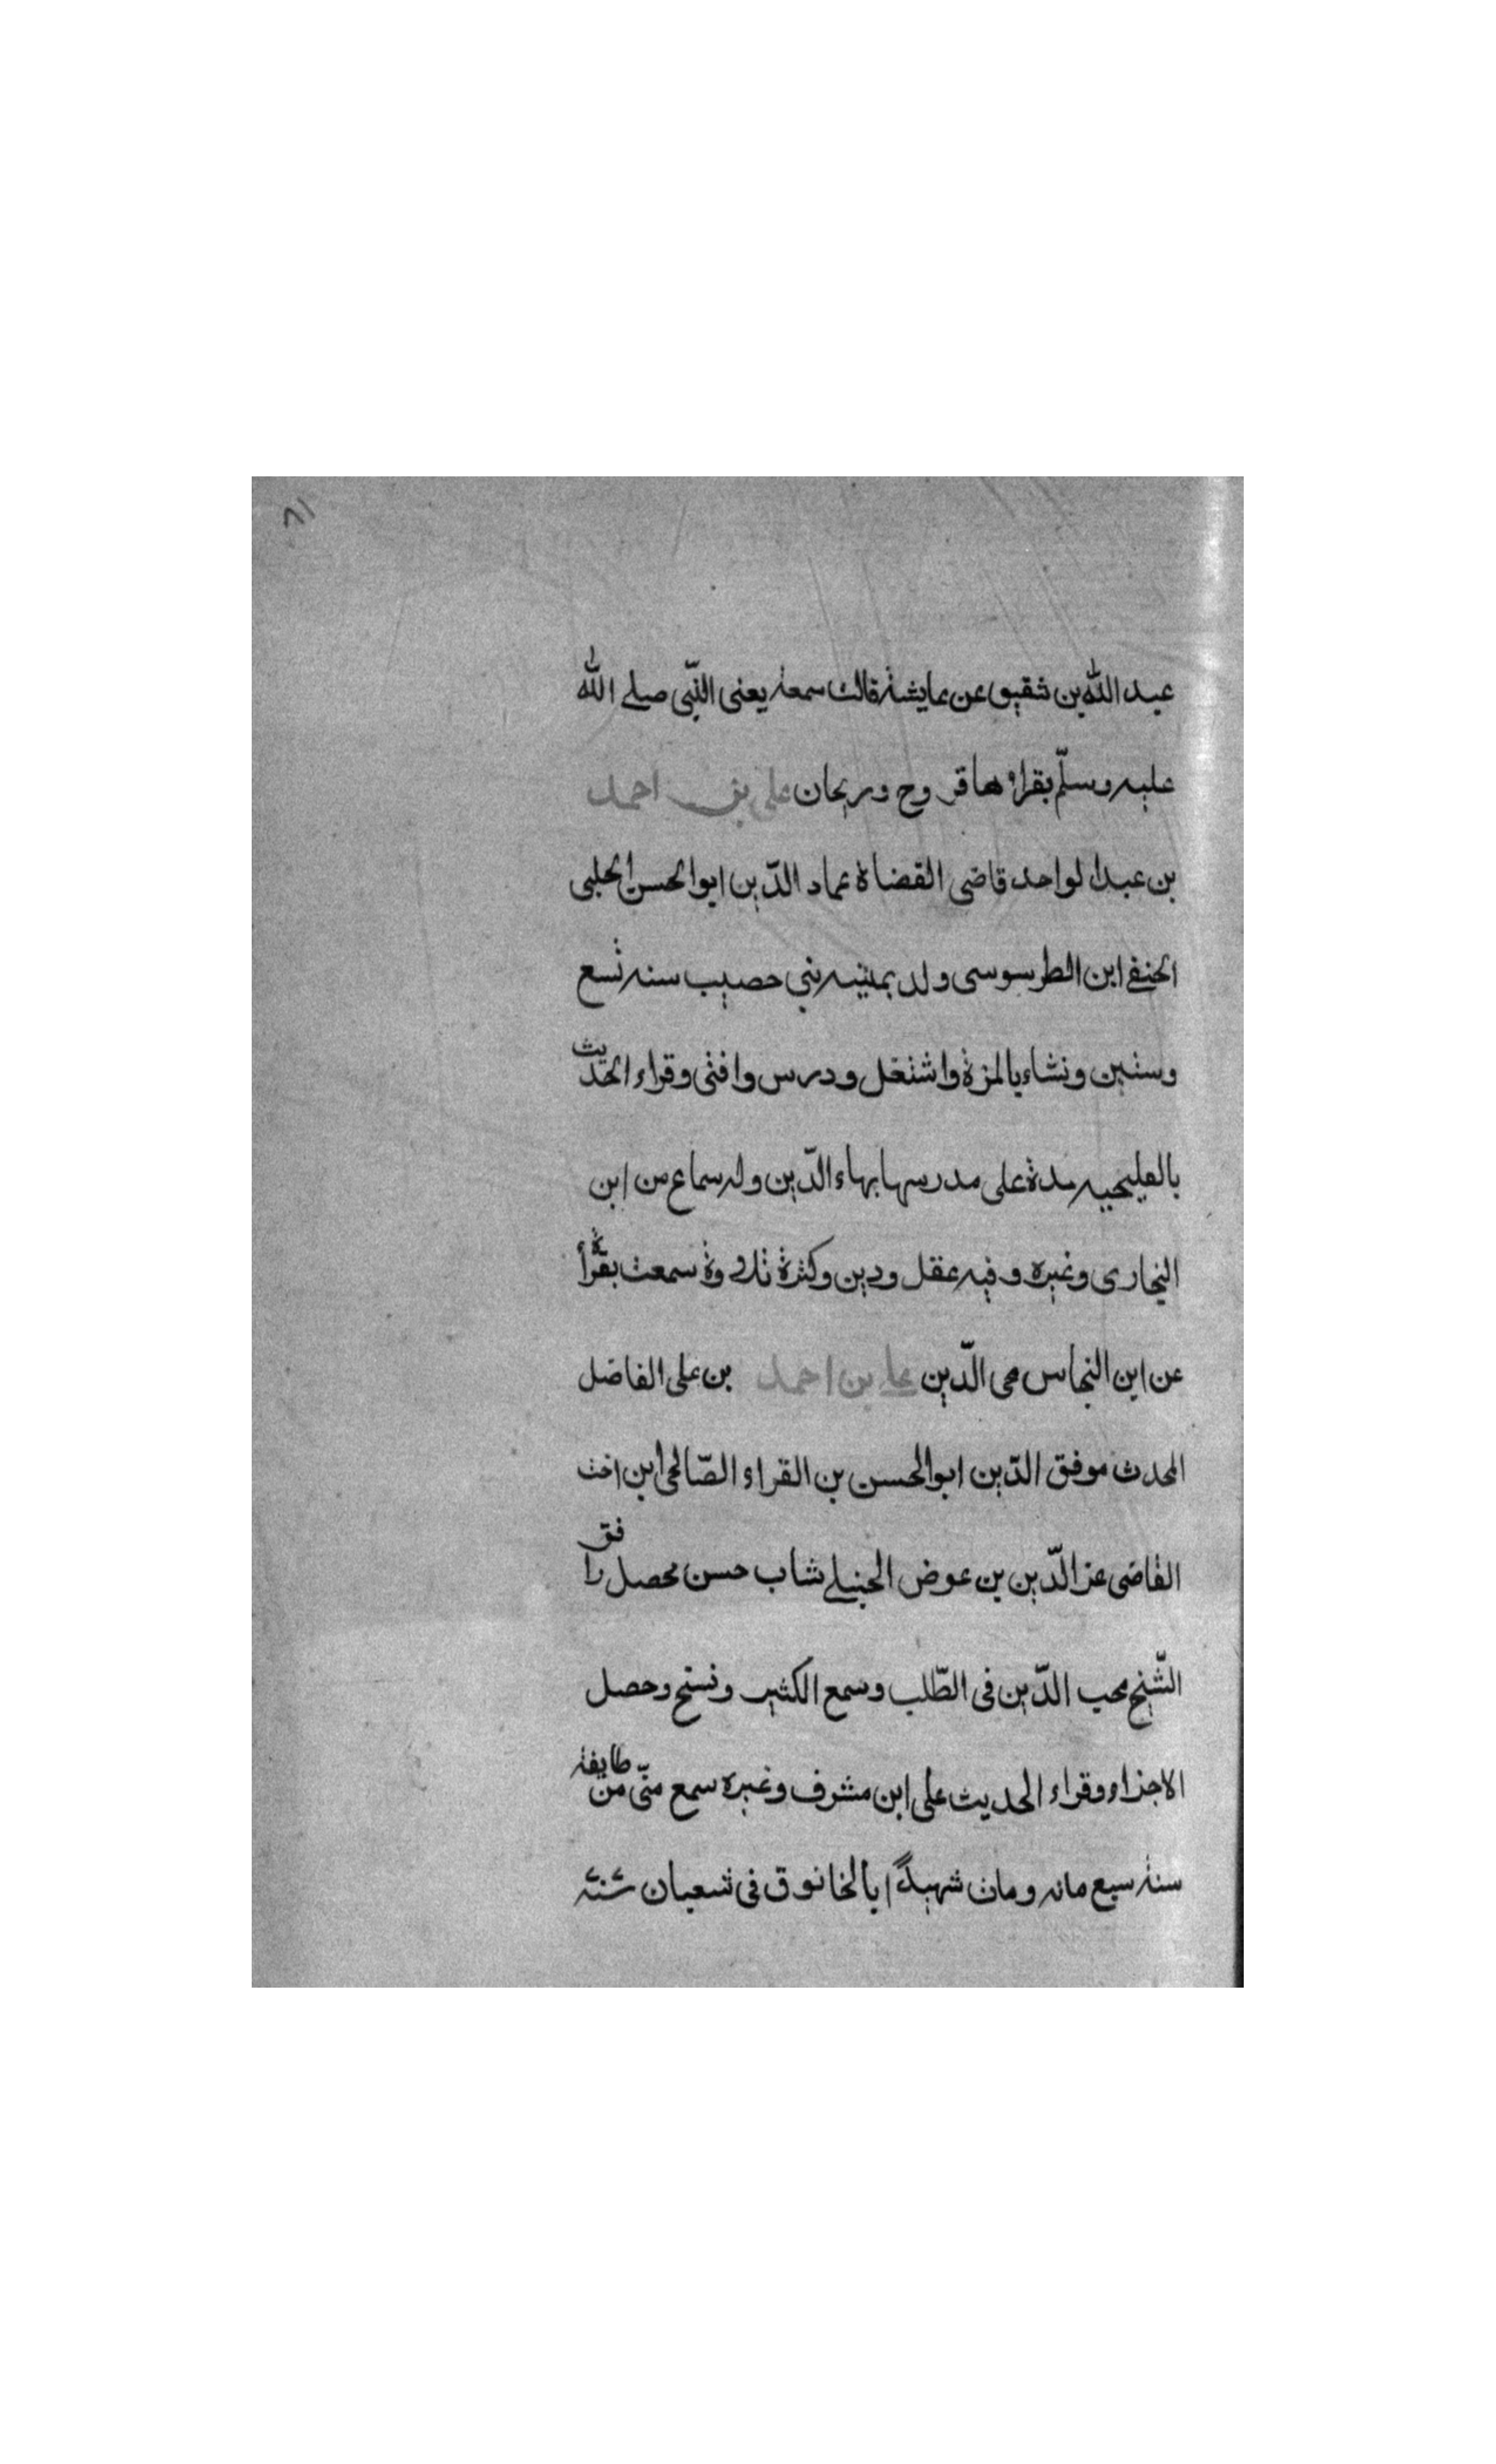 ٨١
عبد الله بن شقيق عن عايشة قالت سمعته يعنى النّبى صلى الله
عليه وسلّم يقراءها فروح وريحان على بن احمد
بن عبد الواحد قاضى القضاة عماد الدّين ابو الحسن الحلبى
الحنفى ابن الطرسوسى ولد بمنية بنى حصيب سنه تسع
وستين ونشاء بالمزة واشتغل ودرس وافتى وقراء الحديث
بالقليجيه مدة على مدرسها بهاء الدّين وله سماع من ابن
البخارى وغيره وفيه عقل ودين وكثرة تلاوة سمعت بقرأة
عن ابن النحاس محى الدّين على بن احمد بن على الفاضل
المحدث موفق الدّين ابو الحسن بن القراء الصّالحى ابن اخت
القاضى عز الدّين بن عوض الحنبلى شاب حسن محصل رافق
الشّيخ محب الدّين فى الطّلب وسمع الكثير ونسخ وحصل
الاجزاء وقراء الحديث على ابن مشرف وغيره سمع منّى من طايفة
سنة سبع مائه ومات شهيدًا بالخانوق فى شعبان